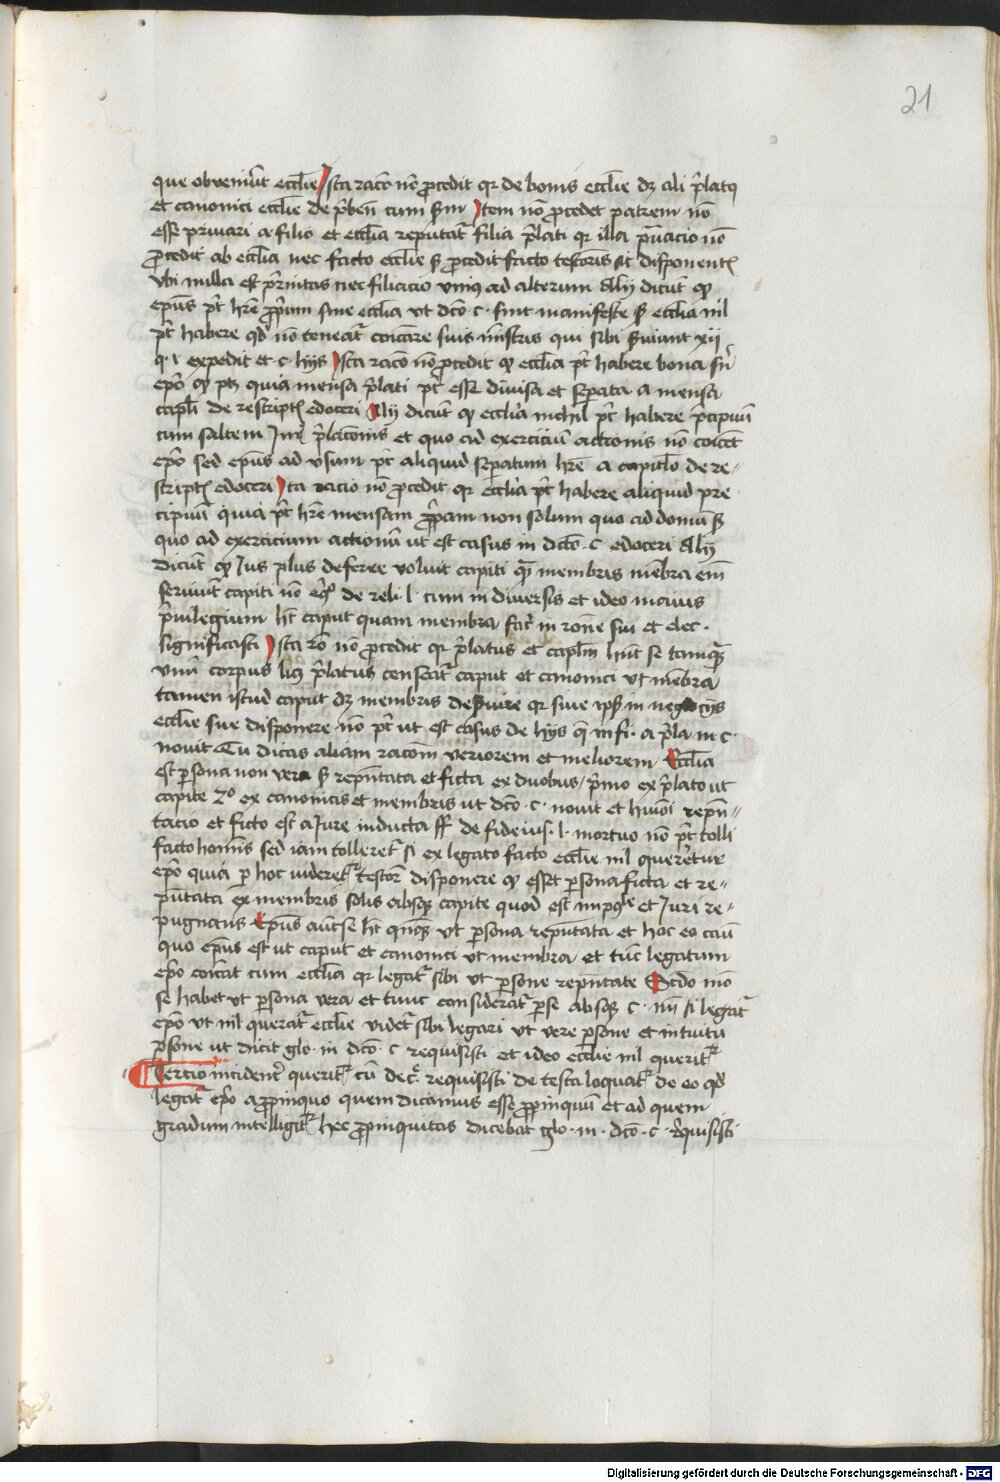 21
que obveniu͂t eccl͂ie Ista rac͂o no͂ p͂cedit qr de bonis eccl͂ie dꝫ ali p͂latꝯ
et canonici eccl͂ie de p͂ben͂ cum Item no͂ p͂cedet patrem no͂
esse privari a filio et eccl͂ia reputat͂ filia p͂lati qr illa no͂
p͂cedit ab eccl͂ia nec facto eccl͂ie sꝫ p͂cedit facto testoris sic disponent͂
vbi nulla est nec filiacio vniꝯ ad alterum Alij dicu͂t qꝫ
ep͂us p͂t hr͂e p͂prium sine eccl͂ia vt dc͂o · c · sint manifeste sꝫ eccl͂ia nil
p͂t habere qd no͂ teneat͂ co͂icare suis mi͂stris qui sibi s͂viunt xij
q · 1 · expedit et · c · hijs Ista rac͂o no͂ p͂cedit qꝫ eccl͂ia p͂t habere bona sn͂
ep͂o qꝫ ptꝫ quia mensa p͂lati p͂t esse divisa et sep͂ata a mensa
capl͂i de rescript͂ edoceri Alij dicu͂t qꝫ eccl͂ia nichil p͂t habere p͂cipuu͂
cum saltem Jur͂ p͂lac͂onis et quo ad exercitiu͂ actionis no͂
ep͂o sed ep͂us ad vsum p͂t aliquid sep͂atum hr͂e a capitl͂o de re-
script͂ edoceri Ista racio no͂ p͂cedit qr eccl͂ia p͂t habere aliquid pre
cipuu͂ quia p͂t hr͂e mensam p͂p͂am non solum quo ad domu͂ sꝫ
quo ad exercitium actionu͂ ut est casus in dc͂o · c edoceri Alij
dicu͂t qꝫ Jus plus deferre voluit capiti qua͂ membris me͂bra em͂
serviu͂t capiti no͂ de reli · l · cum in diversis et ideo maius
p͂vilegium h͂t caput quam membra fac͂ in ro͂ne sui et elec ·
significasti Ista ro͂ no͂ p͂cedit qr p͂latus et capl͂m hn͂t se tamqua͂
vnu͂ corpus licꝫ p͂latus censeat͂ caput et canonici vt me͂bra
tamen istud caput dꝫ membris qr sine ip͂is in negocijs
eccl͂ie sue disponere no͂ p͂t ut est casus de hijs q͂ in fi · a p͂la in c ·
novit Tu dicas aliam racom͂ veriorem et meliorem Eccl͂ia
est p͂sona non vera sꝫ repn͂tata et ficta ex duobus / p͂mo ex p͂lato ut
capite 2º ex canonicis et membris ut dc͂o · c · novit et hm͂oi repn͂-
tacio et ficto est a Jure inducta ff de fideius · l · mortuo no͂ p͂t tolli
facto hom͂is sed iam tolleret͂ si ex legato facto eccl͂ie nil quereretur
ep͂o quia p hoc videret͂ testor͂ disponere qꝫ esset p͂sona ficta et re-
pn͂tata ex membris solis absqꝫ capite quod est et Juri re-
pugnans Ep͂us aut͂ se h͂t vt p͂sona repn͂tata et hoc eo casu͂
quo ep͂us est ut caput et canonici vt membra et tu͂c legatum
ep͂o co͂icat cum eccl͂ia qr legat͂ sibi vt p͂sone repn͂tate Sc͂do mo͂
se habet vt p͂sona vera et tunc considerat͂ p͂ se absqꝫ c · si legat͂
ep͂o vt nil querat͂ eccl͂ie videt͂ sibi legari vt vere p͂sone et intuitu
p͂sone ut dicit glo · in dc͂o · c requisisti et ideo eccl͂ie nil querit͂
Tercio incident͂ querit͂ cu͂ dec͂ · requisisti de testa loquat͂ de eo qd
legat͂ ep͂o a p͂pinquo quem dicamus esse p͂pinquu͂ et ad quem
gradum intelligit͂ hec p͂pinquitas dicebat glo · in · dc͂o · c · requisisti
Digitalisierung gefördert durch die Deutsche Forschungsgemeinschaft - DFG